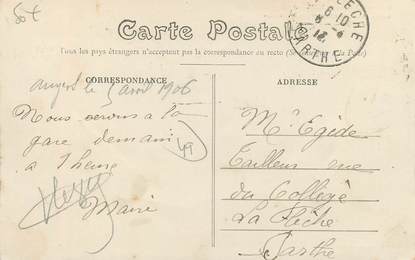 Carte Postale
Tous les pays étrangers n'acceptent pas la correspondance au recto (Se à la Poste)
CORRESPONDANCE
ADRESSE
le 5 avril 1906
Nous serons à la
gare demain
à 1 heure
Marie
49
FLECHE
SARTHE
Mr Egide
Tailleur rue
du Collège
La Flèche
Sarthe